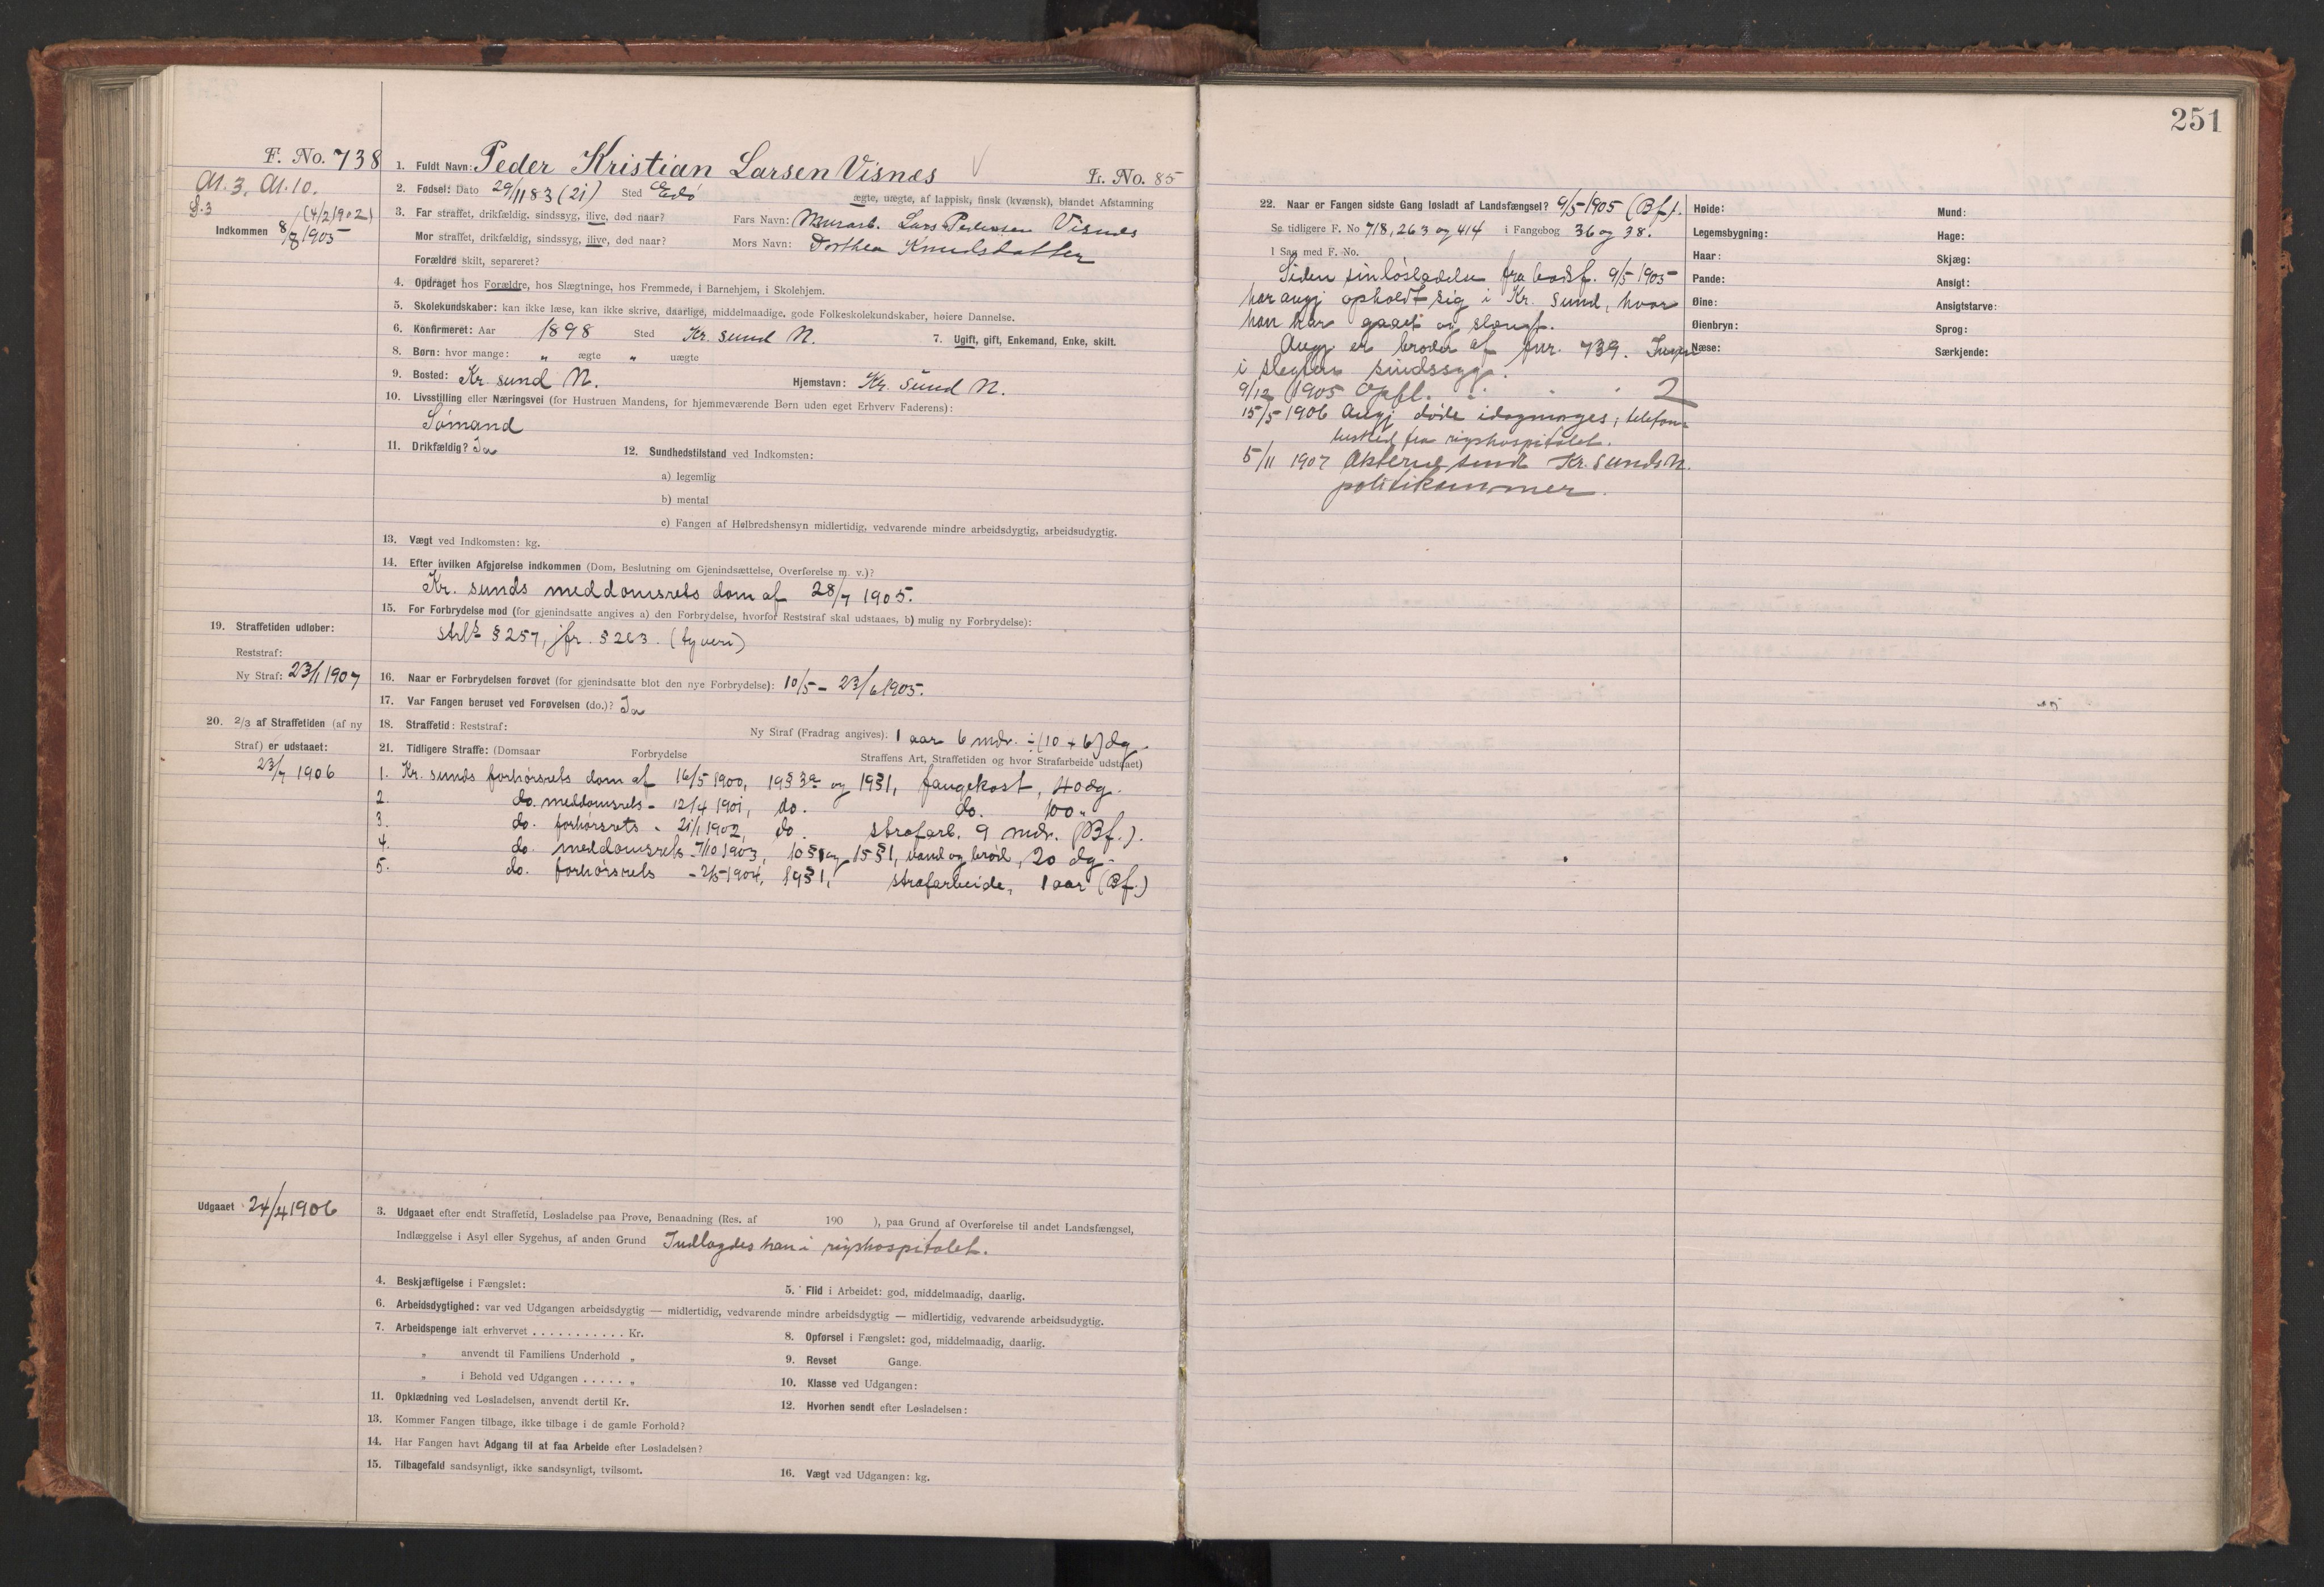 251
F. No. 738
1. Fuldt Navn: Peder Kristian Larsen Visnes
L. No. 85
At. 3. At. 10.
2. Fødsel: Dato 29/11 83 (21) Sted Edö
ægte, uægte, af lappisk, finsk (kvænsk), blandet Afstamning
S. 3 (4/2 1902)
3. Far straffet, drikfældig, sindssyg, ilive, død naar? Fars Navn: Murarb. Lars Pedersen Visnes
Indkommen 8/8 1905
Mor straffet, drikfældig, sindssyg, ilive, død naar? Mors Navn: Dorthea Knudsdatter
Forældre skilt, separeret?
4. Opdraget hos Forældre, hos Slægtninge, hos Fremmede, i Barnehjem, i Skolehjem.
5. Skolekundskaber: kan ikke læse, kan ikke skrive, daarlige, middelmaadige, gode Folkeskolekundskaber, høiere Dannelse.
6. Konfirmeret: Aar 1898 Sted Kr. sund N. 7. Ugift, gift, Enkemand, Enke, skilt.
8. Børn: hvor mange: „ ægte „ uægte
9. Bosted: Kr. sund N. Hjemstavn: Kr. sund N.
10. Livsstilling eller Næringsvei (for Hustruen Mandens, for hjemmeværende Børn uden eget Erhverv Faderens):
Sömand
11. Drikfældig? Ja 12. Sundhedstilstand ved Indkomsten:
a) legemlig
b) mental
c) Fangen af Helbredshensyn midlertidig, vedvarende mindre arbeidsdygtig, arbeidsudygtig.
13. Vægt ved Indkomsten: kg.
14. Efter hvilken Afgjørelse indkommen (Dom, Beslutning om Gjenindsættelse, Overførelse m. v.)?
Kr. sunds meddomsrets dom af 28/7 1905.
15. For Forbrydelse mod (for gjenindsatte angives a) den Forbrydelse, hvorfor Reststraf skal udstaaes, b) mulig ny Forbrydelse):
strl § 257, jfr. § 263. (tyveri)
19. Straffetiden udløber:
Reststraf:
Ny Straf: 23/1 1907
16. Naar er Forbrydelsen forøvet (for gjenindsatte blot den nye Forbrydelse): 10/5 - 23/6 1905.
17. Var Fangen beruset ved Forøvelsen (do.)? Ja
20. 2/3 af Straffetiden (af ny
Straf) er udstaaet:
23/7 1906
18. Straffetid: Reststraf: Ny Straf (Fradrag angives): 1 aar 6 mdr. ÷ (10 + 6) dg.
21. Tidligere Straffe: (Domsaar Forbrydelse Straffens Art, Straffetiden og hvor Strafarbeide udstaaet)
1. Kr. sunds forhörsrets dom af 16/5 1900, 19 § 3a og 19 § 1, fangekost, 40 dg.
2. do. meddomsrets - 12/4 1901, do. do. 100 "
3. do. forhörsrets - 21/1 1902, do. strafarb. 9 mdr. (Bf.).
4. do. meddomsrets - 7/10 1903, 10 § 1 og 15 § 1, vand og bröd, 20 dg.
5. do. forhörsrets - 2/5 1904, 19 § 1, strafarbeide, 1 aar (Bf.)
Udgaaet 24/4 1906
3. Udgaaet efter endt Straffetid, Løsladelse paa Prøve, Benaadning (Res. af 190 ), paa Grund af Overførelse til andet Landsfængsel,
Indlæggelse i Asyl eller Sygehus, af anden Grund Indlagdes han i rigshospitalet.
4. Beskjæftigelse i Fængslet: 5. Flid i Arbeidet: god, middelmaadig, daarlig.
6. Arbeidsdygtighed: var ved Udgangen arbeidsdygtig — midlertidig, vedvarende mindre arbeidsdygtig — midlertidig, vedvarende arbeidsudygtig.
7. Arbeidspenge ialt erhvervet . . . . . . . . . . . Kr. 8. Opførsel i Fængslet: god, middelmaadig, daarlig.
„ anvendt til Familiens Underhold „ 9. Revset Gange.
„ i Behold ved Udgangen . . . . . „ 10. Klasse ved Udgangen:
11. Opklædning ved Løsladelsen, anvendt dertil Kr. 12. Hvorhen sendt efter Løsladelsen:
13. Kommer Fangen tilbage, ikke tilbage i de gamle Forhold?
14. Har Fangen havt Adgang til at faa Arbeide efter Løsladelsen?
15. Tilbagefald sandsynligt, ikke sandsynligt, tvilsomt. 16. Vægt ved Udgangen: kg.
22. Naar er Fangen sidste Gang løsladt af Landsfængsel? 9/5 1905 (Bf).
Se tidligere F. No 718, 263 og 414 i Fangebog 36 og 38.
I Sag med F. No.
Siden sin lösladelse fra bodsf. 9/5 1905
har angj opholdt sig i Kr. sund, hvor
han har gaaet og slængt.
Angj er broder af fnr. 739. Ingen
i slegten sindssyg.
9/12 1905 Opfl. 2
15/5 1906 Angj döde idagmorges, telefon-
besked fra rigshospitalet.
5/11 1907 Akterne sendt Kr. sunds N.
politikammer.
Høide: Mund:
Legemsbygning: Hage:
Haar: Skjæg:
Pande: Ansigt:
Øine: Ansigtstarve:
Øienbryn: Sprog:
Næse: Særkjende: